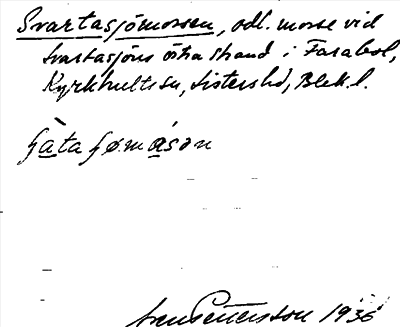 Svartasjömossen, odl. mosse vid
Svartasjöns östra strand i Farabol,
Kyrkhults sn, Listers hd, Blek. l.
Sven Pettersson 1936